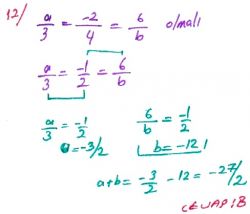 12/ a/3 = -2/4 = 6/b olmalı
a/3 = -1/2 = 6/b
a/3 = -1/2 6/b = -1/2
a = -3/2 b = -12
a+b = -3/2 - 12 = -27/2
CEVAP: B